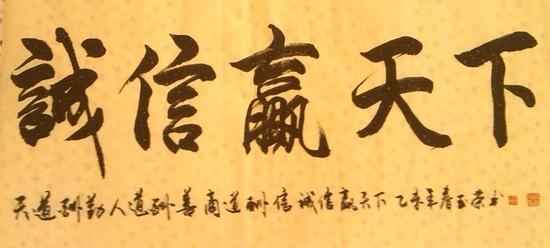 誠信赢天下
天道酬勤人道酬善商道酬信誠信赢天下乙未年春玉荣书